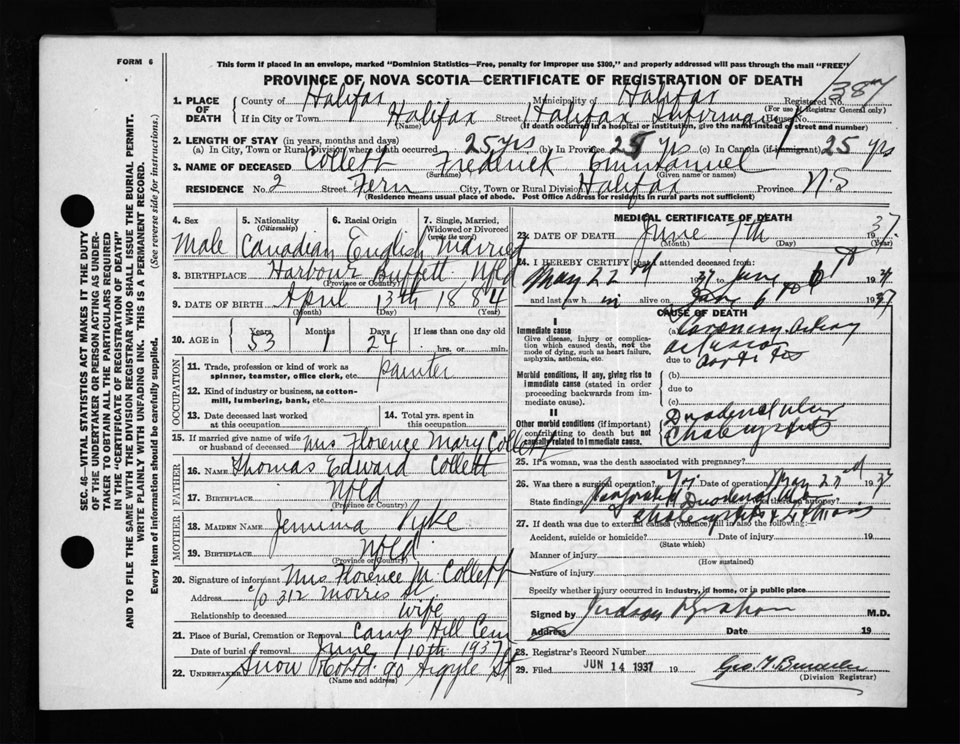 FORM 6
This form if placed in an envelope, marked "Dominion Statistics—Free, penalty for improper use $300," and properly addressed will pass through the mail "FREE"
PROVINCE OF NOVA SCOTIA—CERTIFICATE OF REGISTRATION OF DEATH
SEC. 46—VITAL STATISTICS ACT MAKES IT THE DUTY
OF THE UNDERTAKER OR PERSON ACTING AS UNDER-
TAKER TO OBTAIN ALL THE PARTICULARS REQUIRED
IN THE "CERTIFICATE OF REGISTRATION OF DEATH"
AND TO FILE THE SAME WITH THE DIVISION REGISTRAR WHO SHALL ISSUE THE BURIAL PERMIT.
WRITE PLAINLY WITH UNFADING INK. THIS IS A PERMANENT RECORD.
Every item of information should be carefully supplied. (See reverse side for instructions.)
1. PLACE OF DEATH
County of Halifax Municipality of Halifax Registered No. 387
(For use of Registrar General only)
If in City or Town Halifax Street Halifax Infirmary House No.
(Name) (If death occurred in a hospital or institution, give the name instead of street and number)
2. LENGTH OF STAY (in years, months and days)
(a) In City, Town or Rural Division where death occurred 25 yrs (b) In Province 25 yrs (c) In Canada (if immigrant) 25 yrs
3. NAME OF DECEASED Collett Frederick Emmanuel
(Surname) (Given name or names)
RESIDENCE No. 2 Street Fern City, Town or Rural Division Halifax Province N.S
(Residence means usual place of abode. Post Office Address for residents in rural parts not sufficient)
4. Sex 5. Nationality (Citizenship) 6. Racial Origin 7. Single, Married, Widowed or Divorced (write the word)
Male Canadian English Married
8. BIRTHPLACE Harbour Buffett Nfld
(Province or Country)
9. DATE OF BIRTH April 13th 1884
(Month) (Day) (Year)
10. AGE in Years Months Days If less than one day old
53 1 24 hrs. or min.
OCCUPATION
11. Trade, profession or kind of work as spinner, teamster, office clerk, etc. painter
12. Kind of industry or business, as cotton-mill, lumbering, bank, etc.
13. Date deceased last worked at this occupation
14. Total yrs. spent in this occupation
15. If married give name of wife or husband of deceased Mrs Florence Mary Collett
FATHER
16. NAME Thomas Edward Collett
17. BIRTHPLACE Nfld
(Province or Country)
MOTHER
18. MAIDEN NAME Jemima Pyke
19. BIRTHPLACE Nfld
(Province or Country)
20. Signature of informant Mrs Florence M. Collett
Address c/o 312 Morris St
Relationship to deceased wife
21. Place of Burial, Cremation or Removal Camp Hill Cem
Date of burial or removal June 10th 1937
22. UNDERTAKER Snow 90 Argyle St
(Name and address)
MEDICAL CERTIFICATE OF DEATH
23. DATE OF DEATH June 7th 1937
(Month) (Day) (Year)
24. I HEREBY CERTIFY that I attended deceased from
May 22nd 1937 June 6th 1937
and last saw him alive on June 6th 1937
CAUSE OF DEATH
I
Immediate cause
Give disease, injury or complication which caused death, not the mode of dying, such as heart failure, asphyxia, asthenia, etc.
(a) Coronary Artery
due to
Morbid conditions, if any, giving rise to immediate cause (stated in order proceeding backwards from immediate cause).
(b)
due to
(c)
II
Other morbid conditions (if important) contributing to death but not causally related to immediate cause.
Duodenal ulcer
25. If a woman, was the death associated with pregnancy?
26. Was there a surgical operation? Yes Date of operation May 22nd 1937
State findings Perforated Duodenal Was there an autopsy?
27. If death was due to external causes (violence) fill in also the following:—
Accident, suicide or homicide? Date of injury 19
(State which)
Manner of injury
(How sustained)
Nature of injury
Specify whether injury occurred in industry, in home, or in public place
Signed by Judson Graham M.D.
Address Date 19
28. Registrar's Record Number
29. Filed JUN 14 1937 19
(Division Registrar)